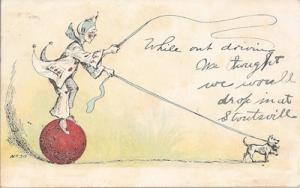 While out driving
We thought
we would
drop in at
Stoutsvill